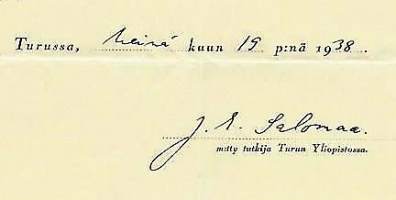 Turussa, heinä kuun 19 p:nä 1938.
J. E. Salomaa.
mtty tutkija Turun Yliopistossa.